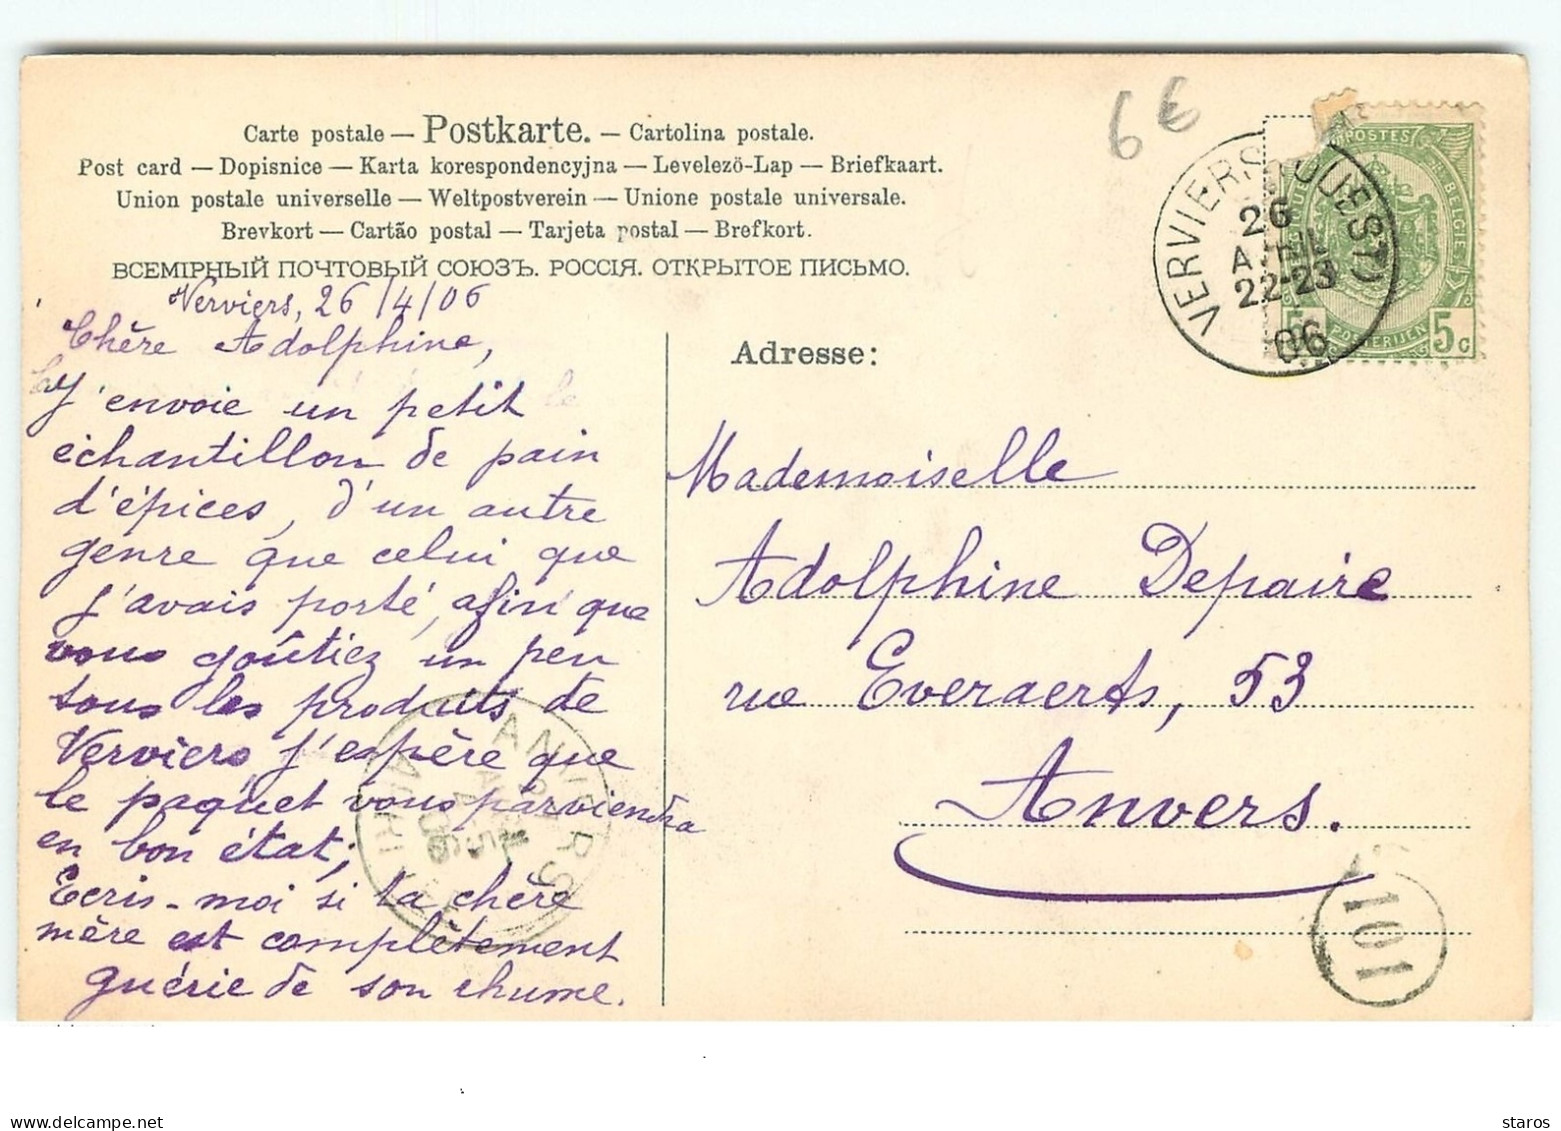 6 €
Carte postale — Postkarte. — Cartolina postale.
Post card — Dopisnice — Karta korespondencyjna — Levelezö-Lap — Briefkaart.
Union postale universelle — Weltpostverein — Unione postale universale.
Brevkort — Cartão postal — Tarjeta postal — Brefkort.
ВСЕМІРНЫЙ ПОЧТОВЫЙ СОЮЗЪ. РОССІЯ. ОТКРЫТОЕ ПИСЬМО.
VERVIERS (OUEST)
26
AVRIL
22-23
06
POSTES
BELGIE
POSTERIJEN
5c
Verviers, 26/4/06
Chère Adolphine,
J'envoie un petit
échantillon de pain
d'épices, d'un autre
genre que celui que
j'avais porté, afin que
vous goûtiez un peu
tous les produits de
Verviers, j'espère que
le paquet vous parviendra
en bon état;
Ecris-moi si ta chère
mère est complètement
guérie de son rhume.
Adresse:
Mademoiselle
Adolphine Depaire
rue Everaerts, 53
Anvers.
ANVERS
06
101
www.delcampe.net
staros